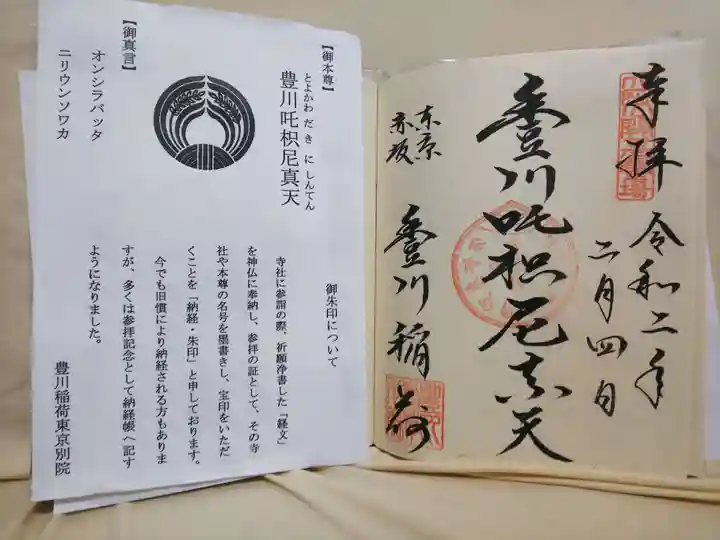 奉拝
令和二年
二月四日
豊川吒枳尼真天
東京
赤坂
豊川稲荷
【御本尊】
とよかわ だ き に しんてん
豊川吒枳尼真天
【御真言】
オンシラバッタ
ニリウンソワカ
御朱印について
寺社に参詣の際、祈願浄書した「経文」
を神仏に奉納し、参拝の証として、その寺
社や本尊の名号を墨書きし、宝印をいただ
くことを「納経・朱印」と申しております。
今でも旧慣により納経される方もありま
すが、多くは参拝記念として納経帳へ記す
ようになりました。
豊川稲荷東京別院